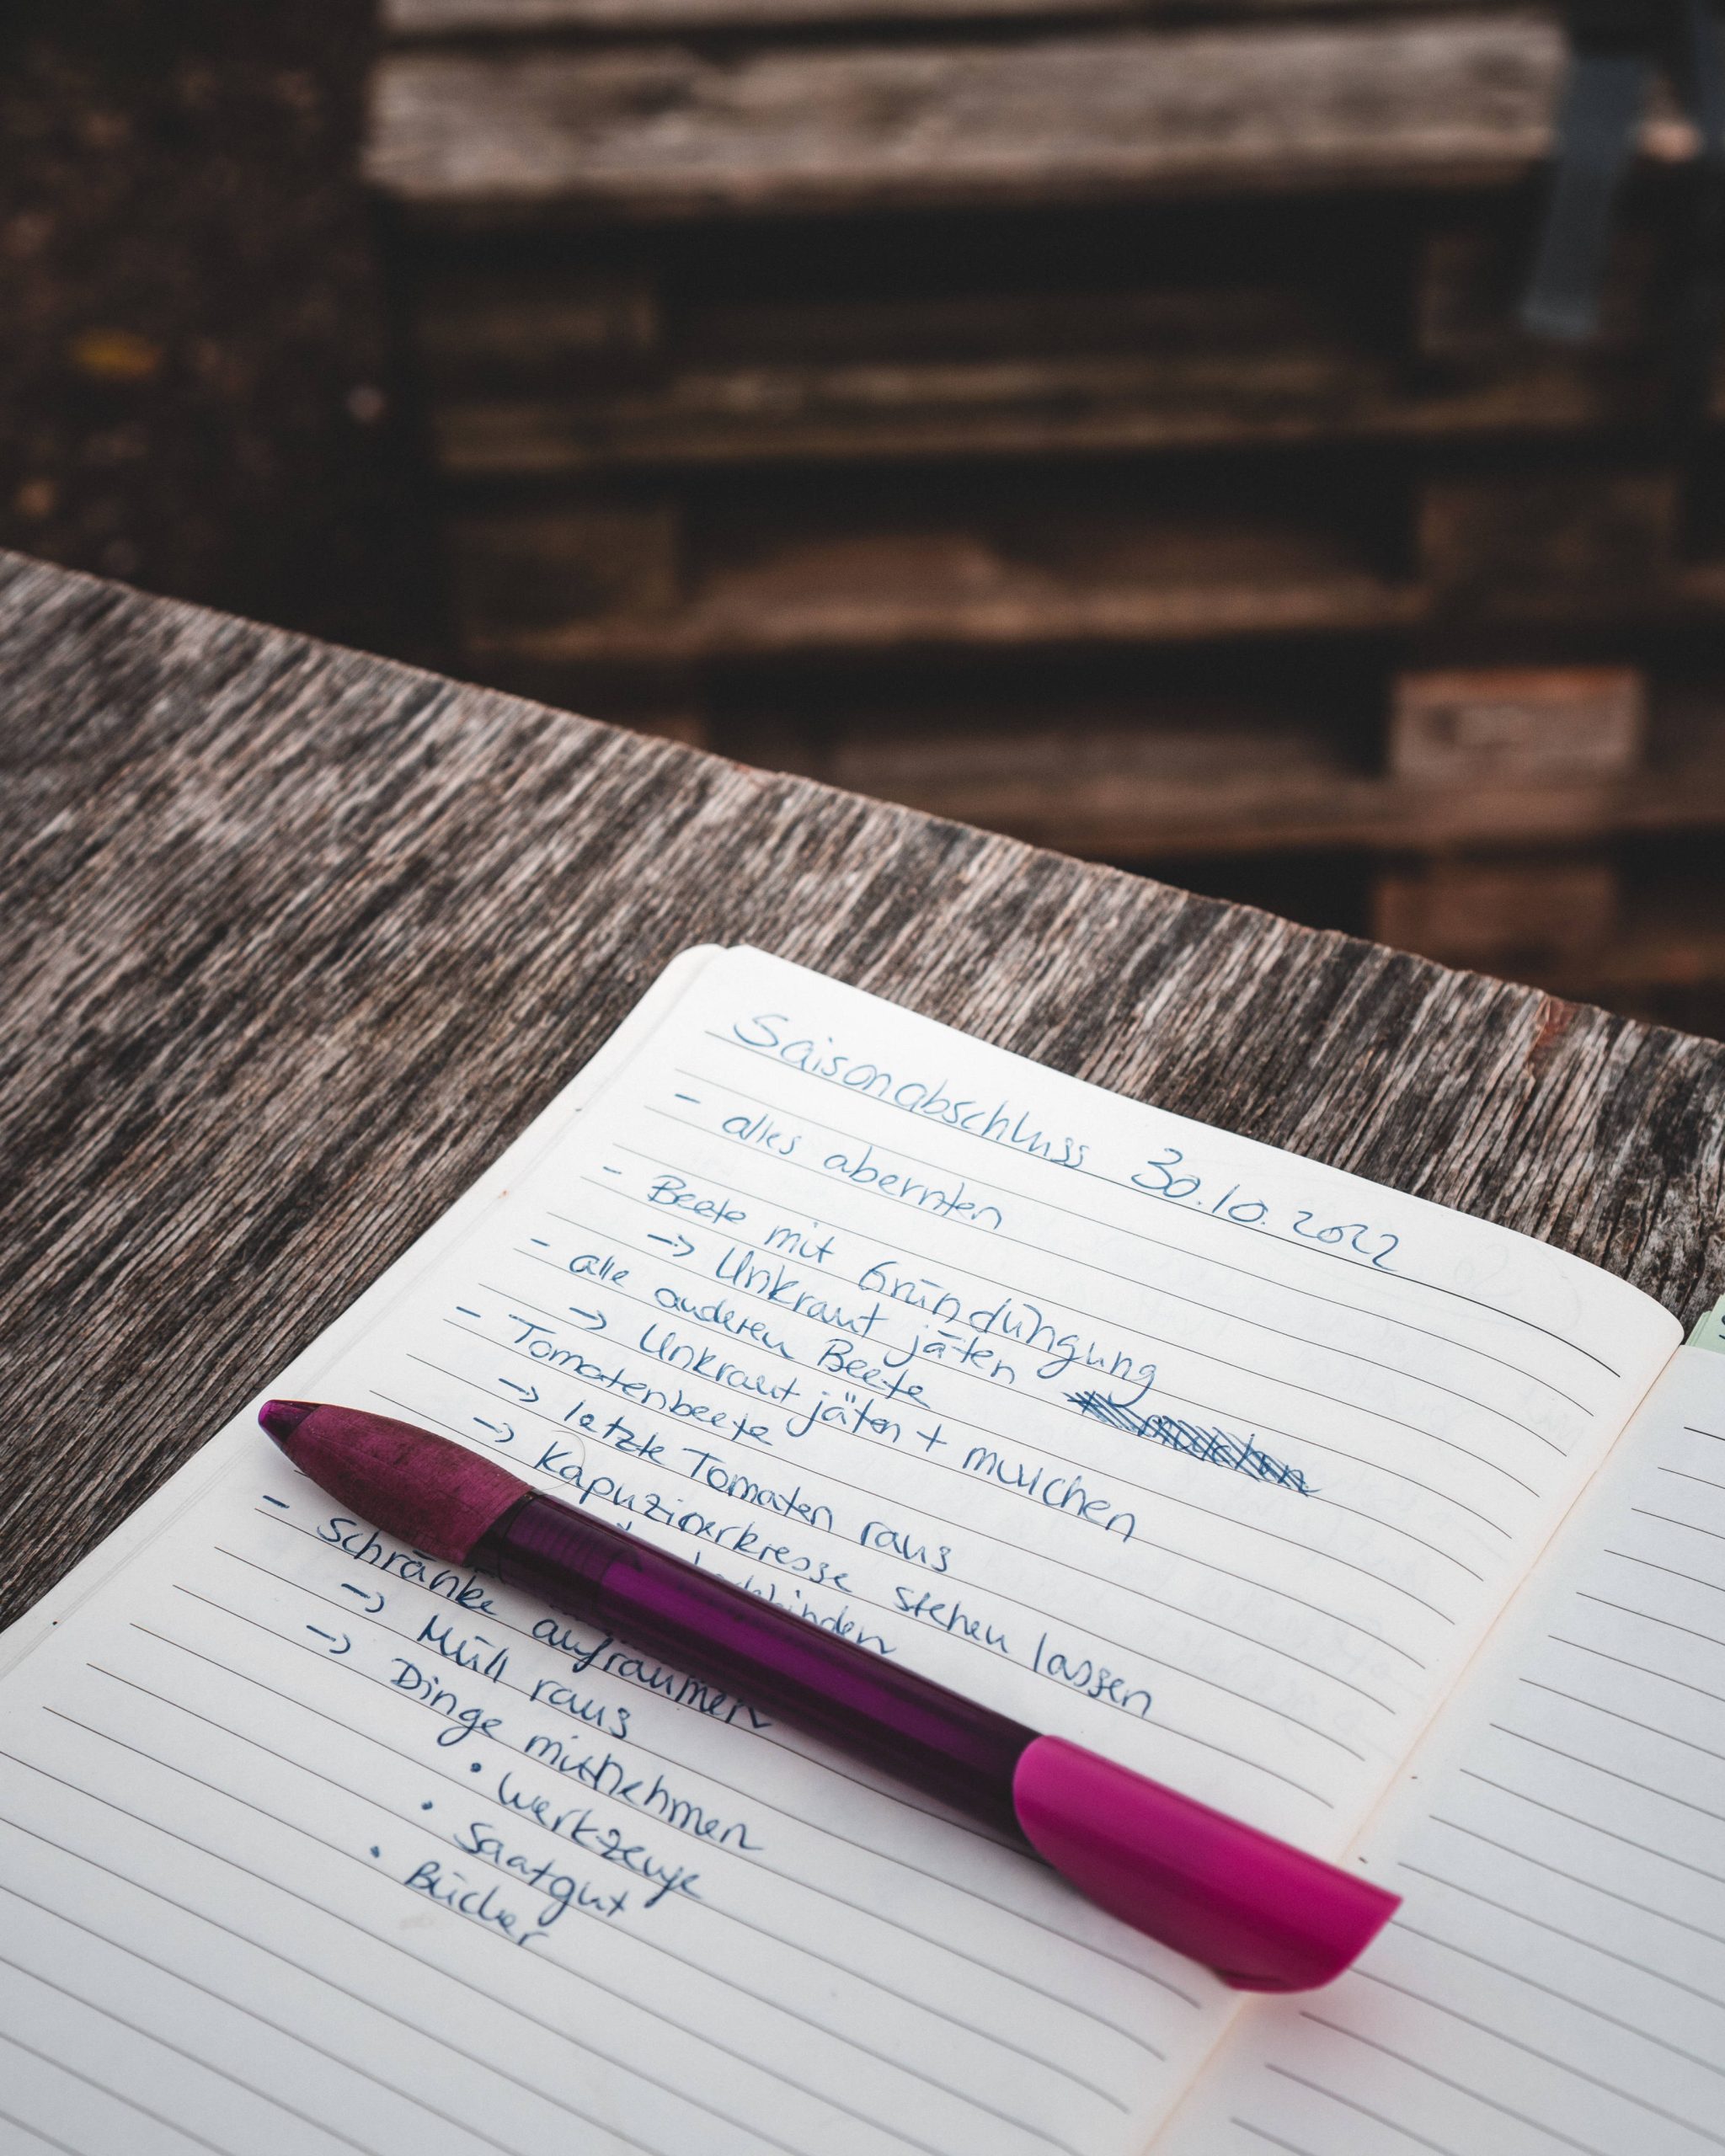 Saisonabschluss 30.10.2022
- alles abernten
- Beete mit Gründüngung
-> Unkraut jäten
- alle anderen Beete
-> Unkraut jäten + mulchen
- Tomatenbeete
-> letzte Tomaten raus
-> Kapuzinerkresse stehen lassen
- Schränke aufräumen
-> Müll raus
-> Dinge mitnehmen
• Werkzeuge
• Saatgut
• Bücher